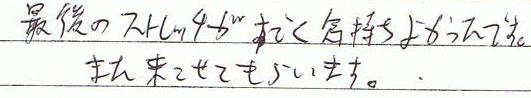 最後のストレッチがすごく気持ちよかったです。
また来させてもらいます。